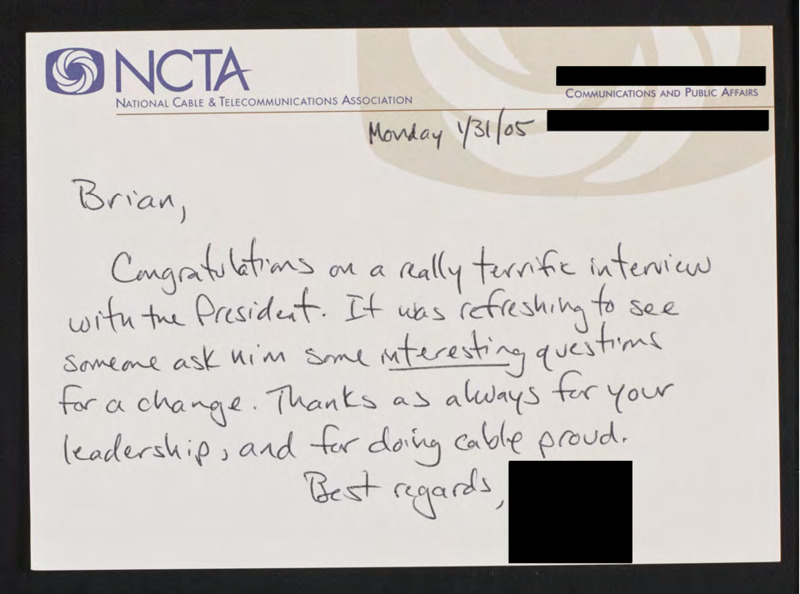 NCTA
NATIONAL CABLE & TELECOMMUNICATIONS ASSOCIATION
COMMUNICATIONS AND PUBLIC AFFAIRS
Monday 1/31/05
Brian,
Congratulations on a really terrific interview
with the President. It was refreshing to see
someone ask him some interesting questions
for a change. Thanks as always for your
leadership, and for doing cable proud.
Best regards,